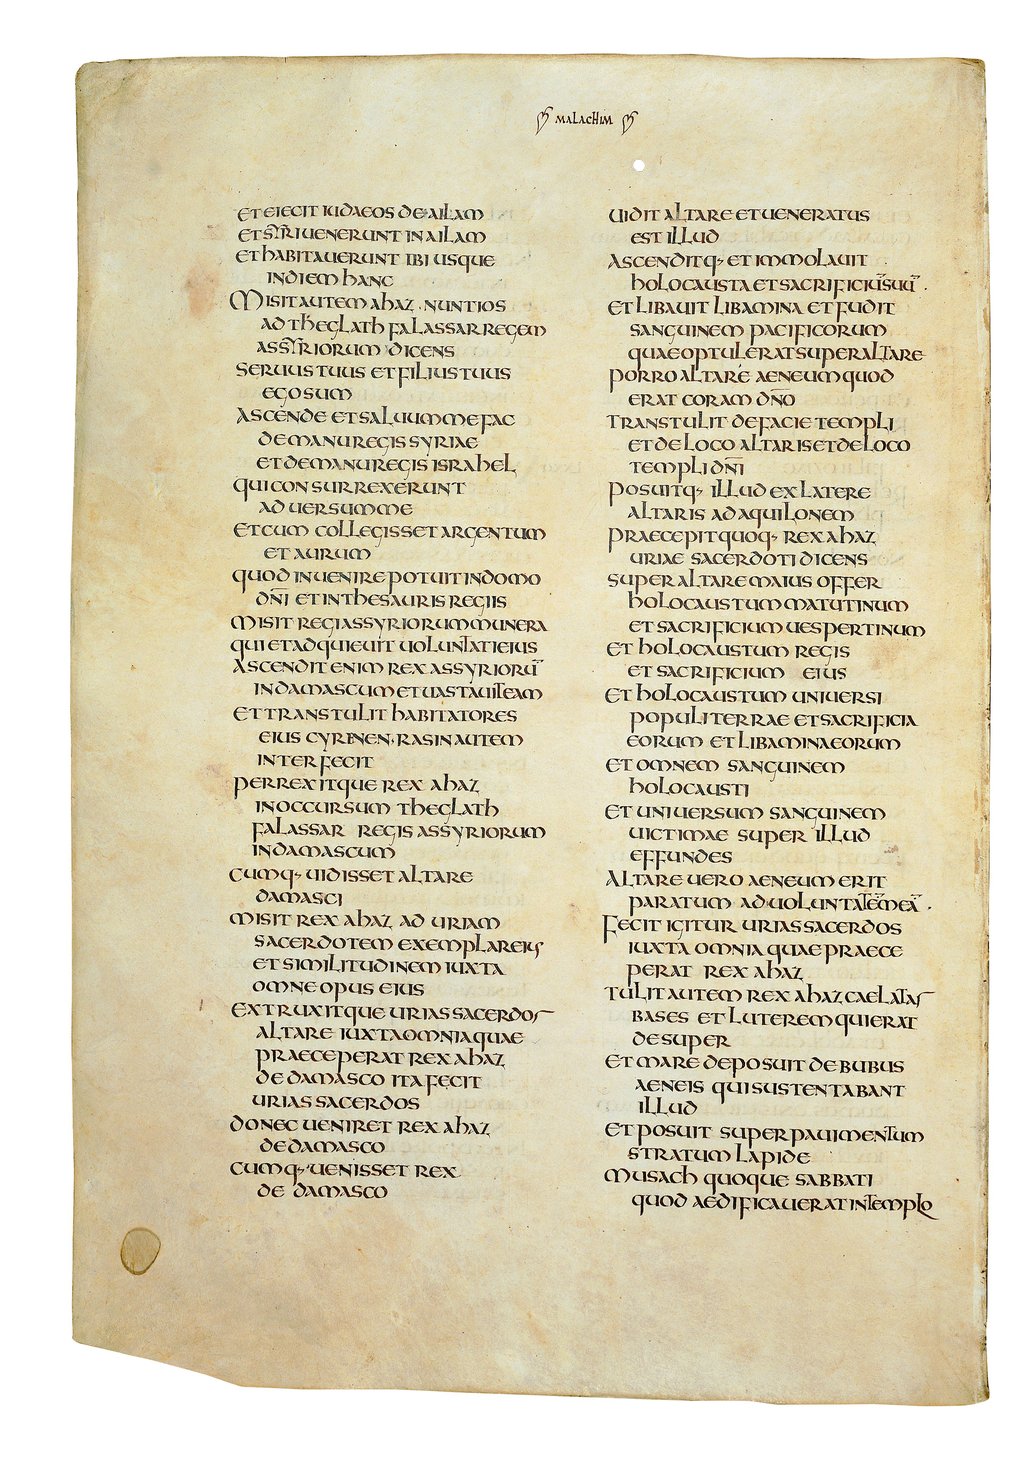 MALACHIM
ET EIECIT IUDAEOS DE AILAM
ET SYRI UENERUNT IN AILAM
ET HABITAUERUNT IBI USQUE
IN DIEM HANC
MISIT AUTEM AHAZ NUNTIOS
AD THEGLATH FALASSAR REGEM
ASSYRIORUM DICENS
SERUUS TUUS ET FILIUS TUUS
EGO SUM
ASCENDE ET SALUUM ME FAC
DE MANU REGIS SYRIAE
ET DE MANU REGIS ISRAHEL
QUI CONSURREXERUNT
ADUERSUM ME
ET CUM COLLEGISSET ARGENTUM
ET AURUM
QUOD INUENIRE POTUIT IN DOMO
DN̄I ET IN THESAURIS REGIIS
MISIT REGI ASSYRIORUM MUNERA
QUI ET ADQUIEUIT UOLUNTATI EIUS
ASCENDIT ENIM REX ASSYRIORŪ
IN DAMASCUM ET UASTAUIT EAM
ET TRANSTULIT HABITATORES
EIUS CYRENEN · RASIN AUTEM
INTERFECIT
PERREXITQUE REX AHAZ
IN OCCURSUM THEGLATH
FALASSAR REGIS ASSYRIORUM
IN DAMASCUM
CUMQ· UIDISSET ALTARE
DAMASCI
MISIT REX AHAZ AD URIAM
SACERDOTEM EXEMPLAR EIUS
ET SIMILITUDINEM IUXTA
OMNE OPUS EIUS
EXTRUXITQUE URIAS SACERDOS
ALTARE IUXTA OMNIA QUAE
PRAECEPERAT REX AHAZ
DE DAMASCO ITA FECIT
URIAS SACERDOS
DONEC UENIRET REX AHAZ
DE DAMASCO
CUMQ· UENISSET REX
DE DAMASCO
UIDIT ALTARE ET UENERATUS
EST ILLUD
ASCENDITQ· ET IMMOLAUIT
HOLOCAUSTA ET SACRIFICIŪ SUŪ ·
ET LIBAUIT LIBAMINA ET FUDIT
SANGUINEM PACIFICORUM
QUAE OPTULERAT SUPER ALTARE
PORRO ALTARE AENEUM QUOD
ERAT CORAM DN̄O
TRANSTULIT DE FACIE TEMPLI
ET DE LOCO ALTARIS ET DE LOCO
TEMPLI DN̄I
POSUITQ· ILLUD EX LATERE
ALTARIS AD AQUILONEM
PRAECEPIT QUOQ· REX AHAZ
URIAE SACERDOTI DICENS
SUPER ALTARE MAIUS OFFER
HOLOCAUSTUM MATUTINUM
ET SACRIFICIUM UESPERTINUM
ET HOLOCAUSTUM REGIS
ET SACRIFICIUM EIUS
ET HOLOCAUSTUM UNIUERSI
POPULI TERRAE ET SACRIFICIA
EORUM ET LIBAMINA EORUM
ET OMNEM SANGUINEM
HOLOCAUSTI
ET UNIUERSUM SANGUINEM
UICTIMAE SUPER ILLUD
EFFUNDES
ALTARE UERO AENEUM ERIT
PARATUM AD UOLUNTATĒ MEĀ ·
FECIT IGITUR URIAS SACERDOS
IUXTA OMNIA QUAE PRAECE
PERAT REX AHAZ
TULIT AUTEM REX AHAZ CAELATAS
BASES ET LUTEREM QUI ERAT
DESUPER
ET MARE DEPOSUIT DE BUBUS
AENEIS QUI SUSTENTABANT
ILLUD
ET POSUIT SUPER PAUIMENTUM
STRATUM LAPIDE
MUSACH QUOQUE SABBATI
QUOD AEDIFICAUERAT IN TEMPLO